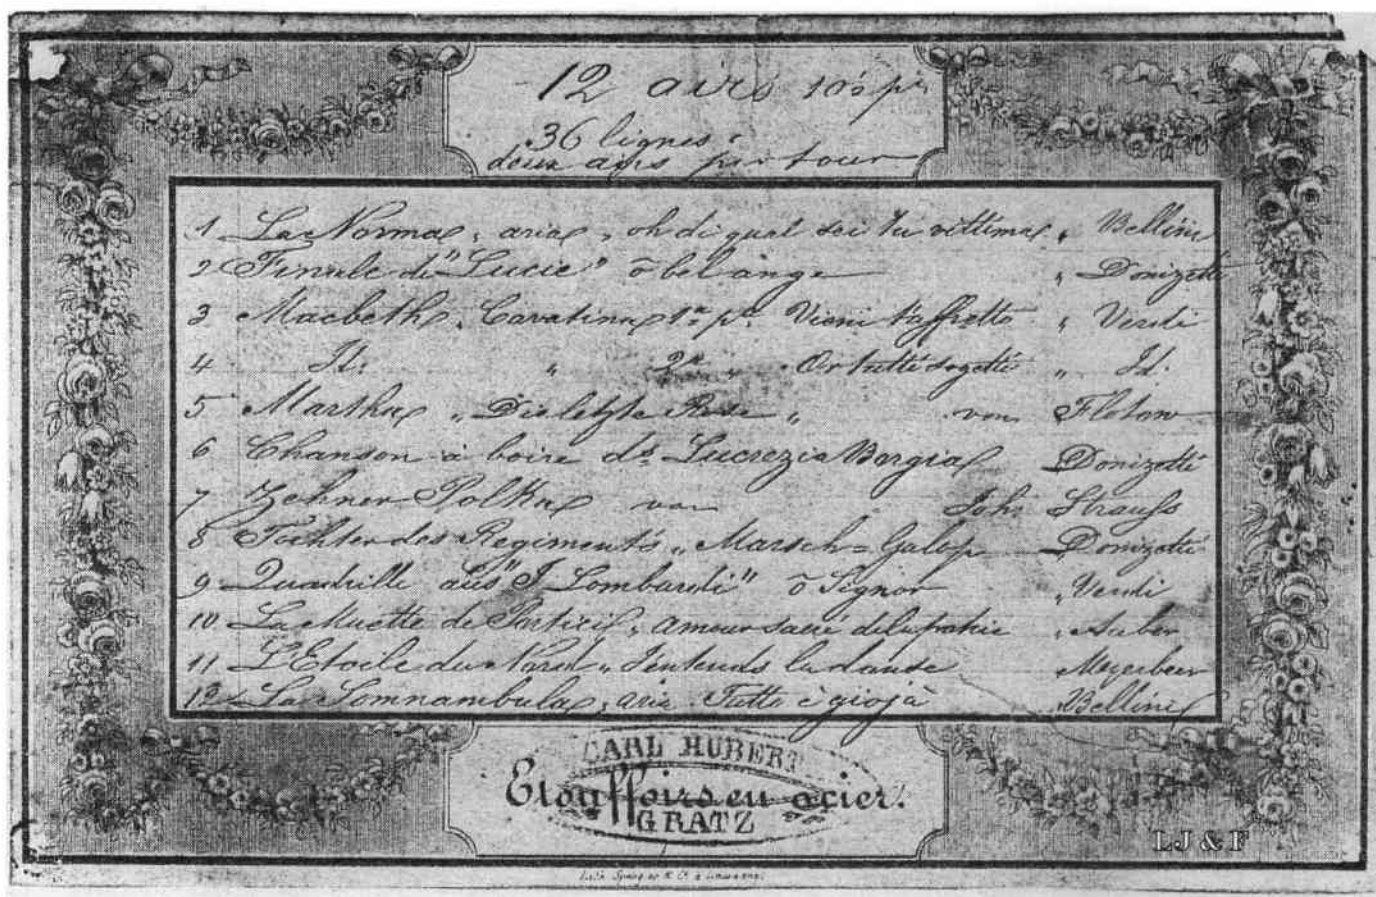 12 airs
36 lignes
deux airs par tour
1 La Norma, aria, oh di qual sei tu vittima, Bellini
2 Finale di "Lucie" ō bel ange " Donizetti
3 Macbeth, Cavatina 1re pe Vieni t'affretta " Verdi
4 Id: " 2e " Or tutti sogetti " Id:
5 Martha " Die letzte Rose " von Flotow
6 Chanson à boire de Lucrezia Borgia Donizetti
7 Zehner Polka von Joh: Strauss
8 Tochter des Regiments " Marsch = Galop Donizetti
9 Quadrille aus "I Lombardi" ō Signor " Verdi
10 La Muette de Portici, amour sacré de la patrie " Auber
11 L'Etoile du Nord " J'entends la danse Meyerbeer
12 La Somnambula, aria Tutto è gioja Bellini
CARL HUBERT
Etouffoirs en acier.
GRATZ
LJ & F